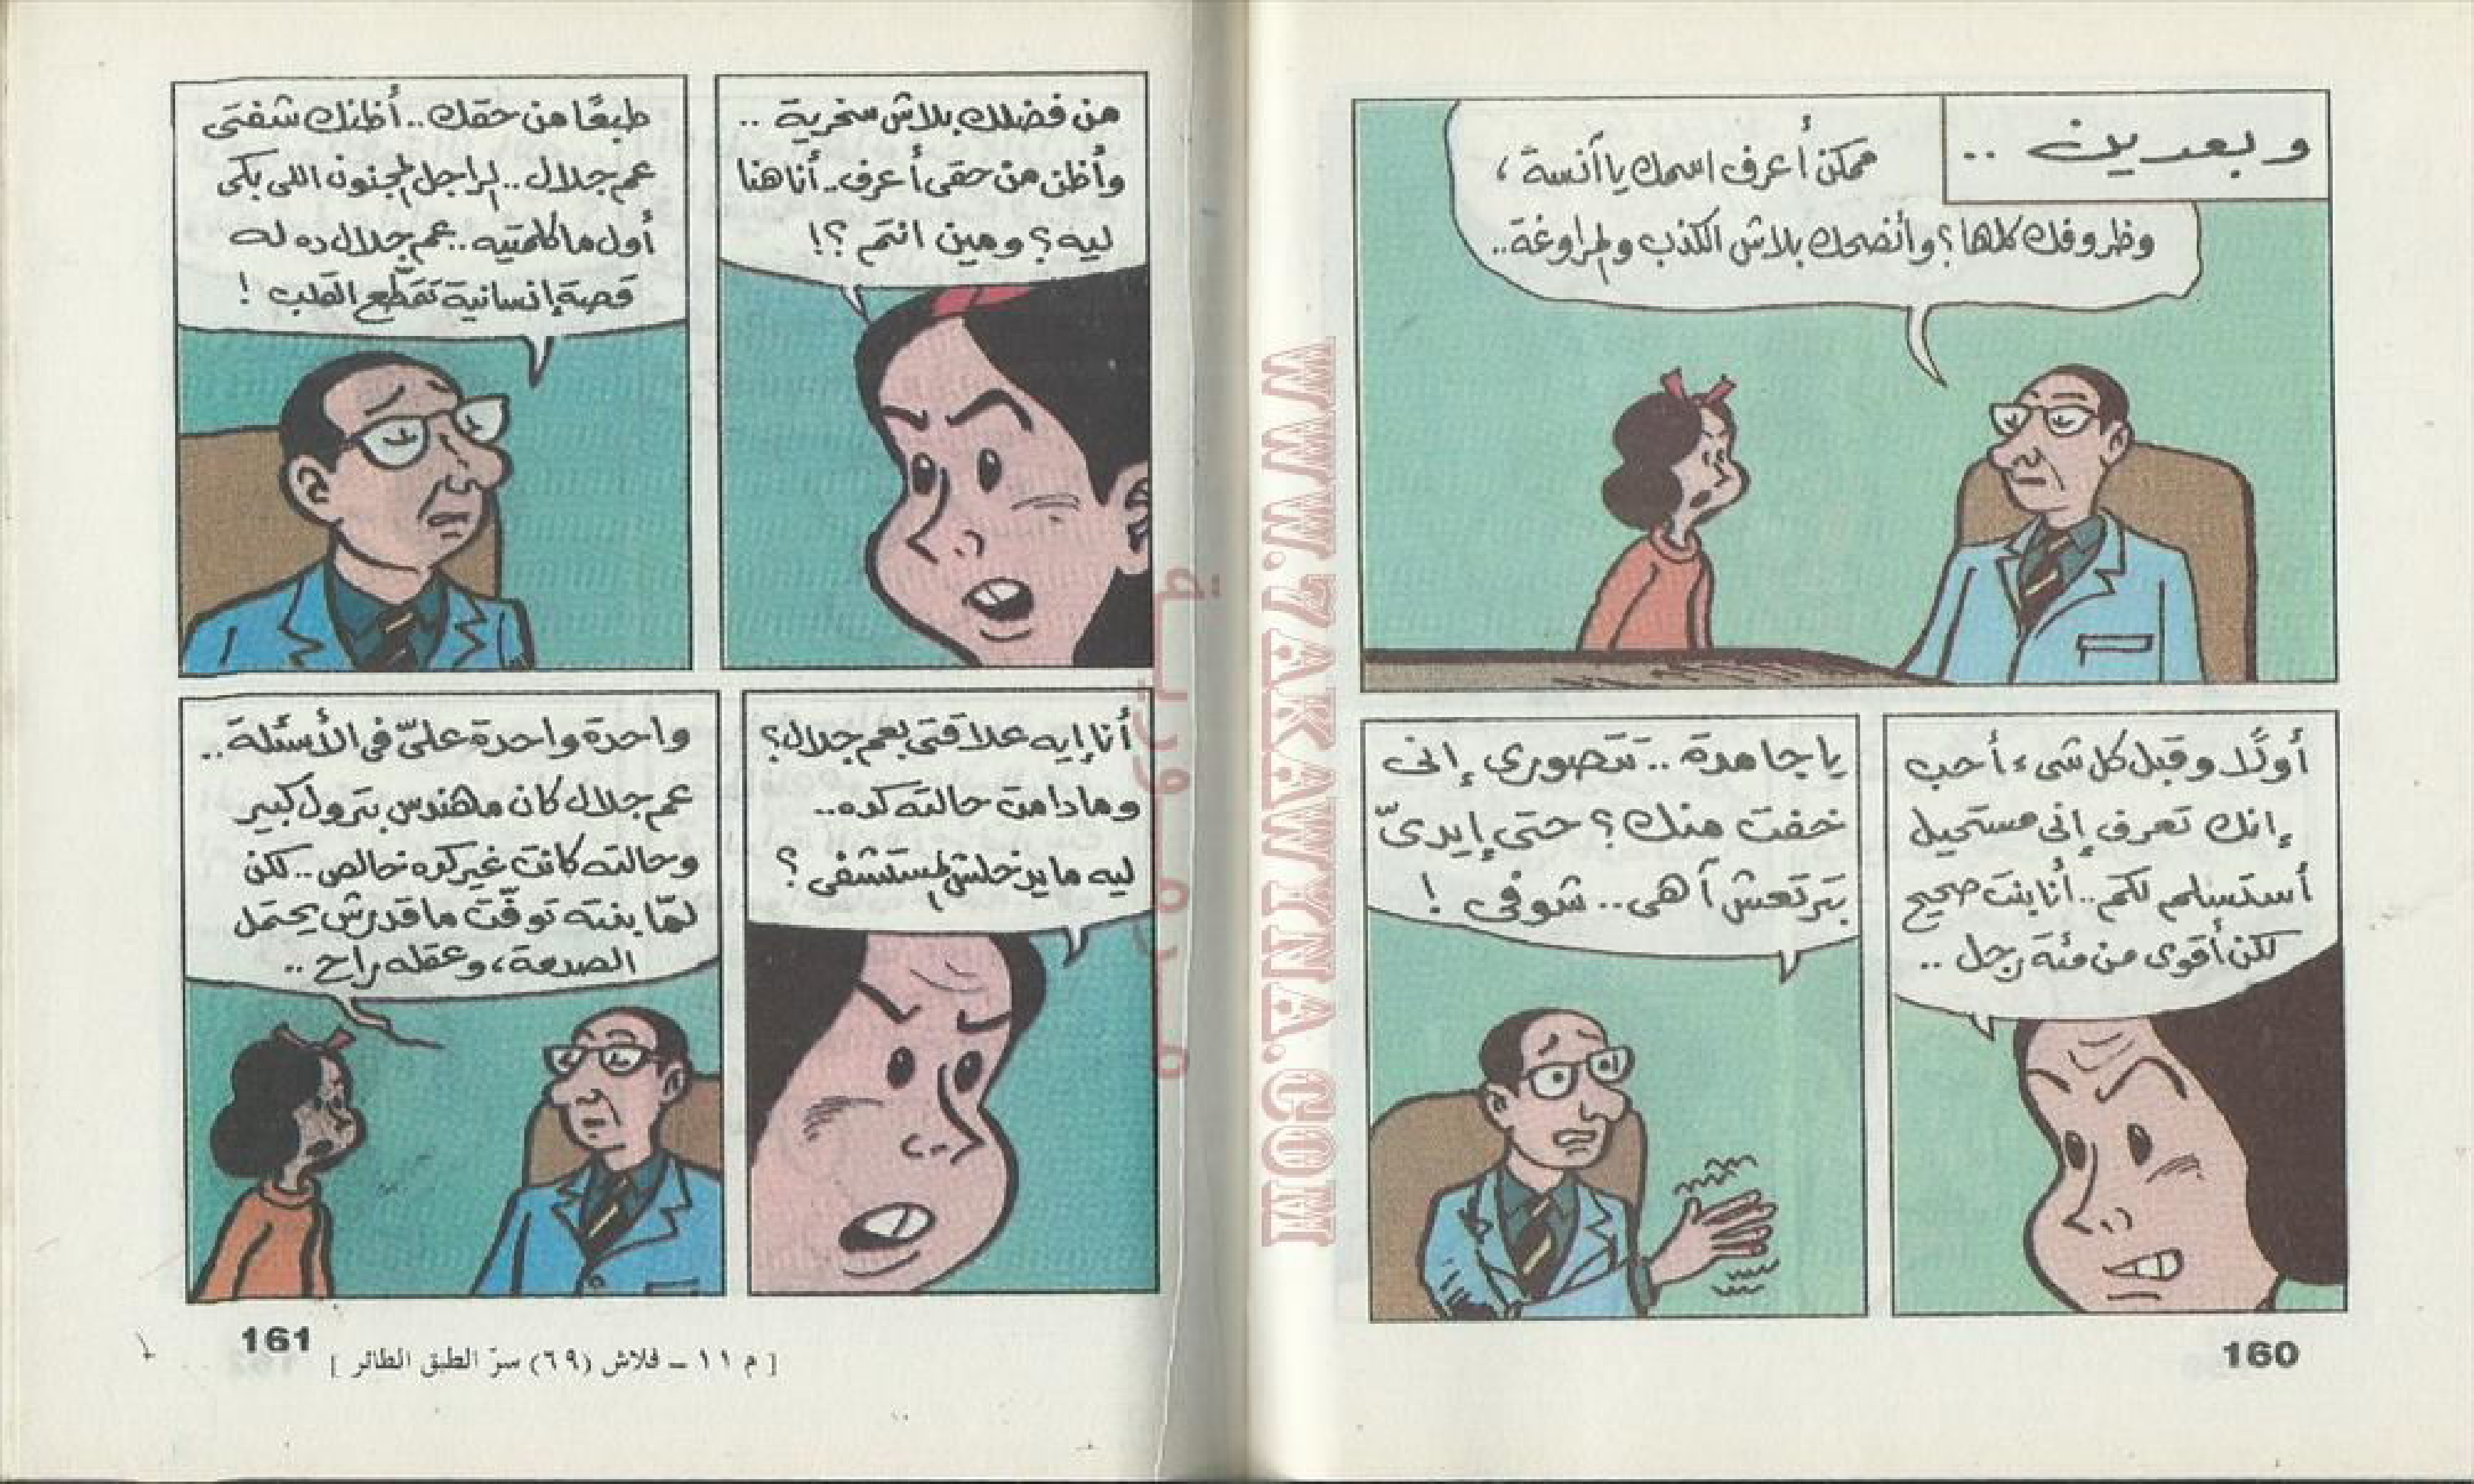 وبعدين ..
ممكن أعرف اسمك يا آنسة ،
وظروفك كلها ؟ وأنصحك بلاش الكذب والمراوغة..
أولًا وقبل كل شىء أحب
إنك تعرف إنى مستحيل
أستسلم لكم.. أنا بنت صحيح
لكن أقوى من مئة رجل ..
يا جامدة .. تتصورى إنى
خفت منك ؟ حتى إيدىّ
بترتعش آهى.. شوفى !
160
WWW.7AKAWINA.COM
من فضلك بلاش سخرية ..
وأظن من حقى أعرف.. أنا هنا
ليه ؟ ومين انتم ؟!
طبعًا من حقك.. أظنك شفتى
عم جلال.. الراجل المجنون اللى بكى
أول ما كلمتيه.. عم جلال ده له
قصة إنسانية تقطّع القلب !
أنا إيه علاقتى بعم جلال ؟
ومادامت حالته كده..
ليه ما يدخلش المستشفى ؟
واحدة واحدة علىّ فى الأسئلة..
عم جلال كان مهندس بترول كبير
وحالته كانت غير كده خالص.. لكن
لمّا بنته توفّت ما قدرش يحتمل
الصدمة، وعقله راح ..
161
[ م ١١ - فلاش (٦٩) سرّ الطبق الطائر ]